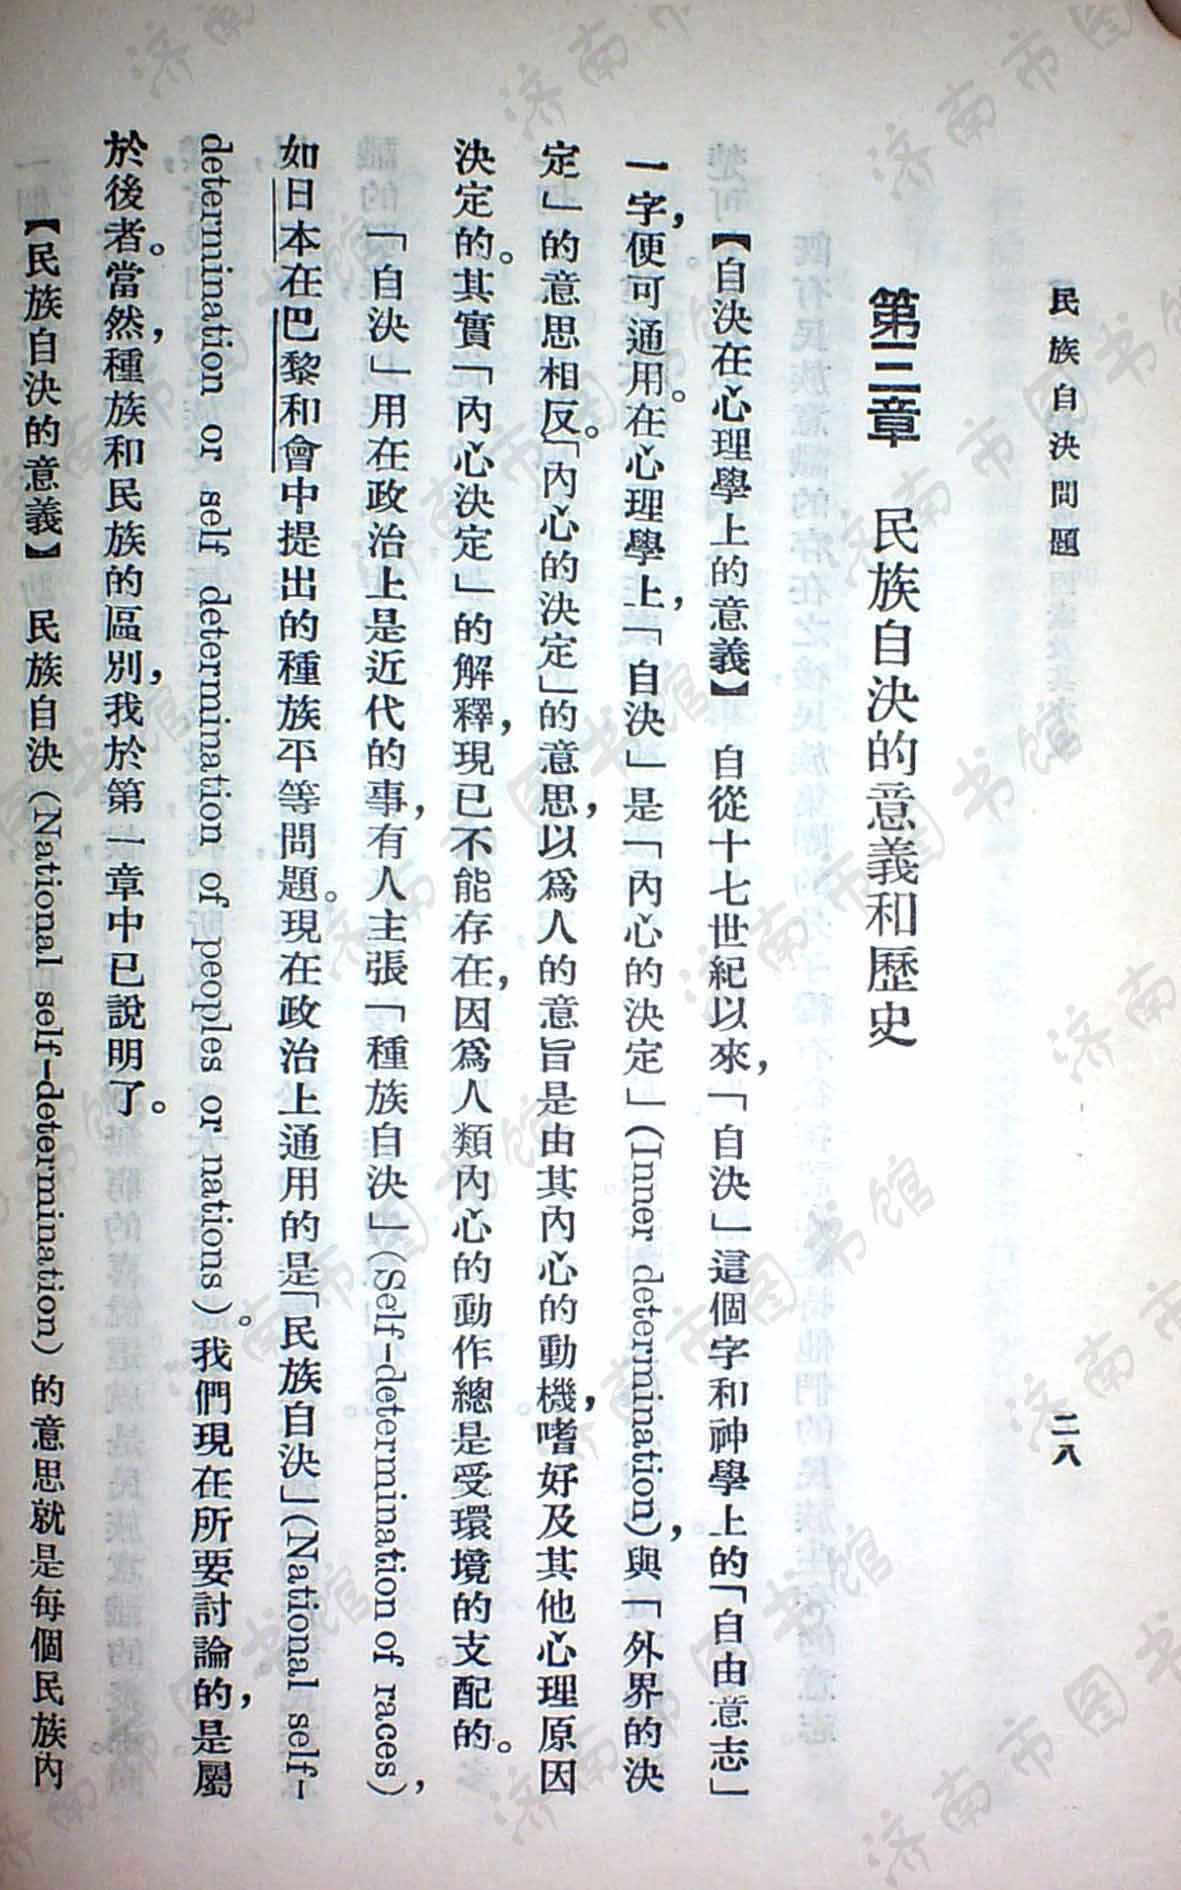 民族自決問題
二八
第三章 民族自決的意義和歷史
【自決在心理學上的意義】 自從十七世紀以來，「自決」這個字和神學上的「自由意志」
一字，便可通用。在心理學上，「自決」是「內心的決定」(Inner determination)，與「外界的決
定」的意思相反。「內心的決定」的意思，以爲人的意旨是由其內心的動機，嗜好及其他心理原因
決定的。其實「內心決定」的解釋，現已不能存在，因爲人類內心的動作總是受環境的支配的。
「自決」用在政治上是近代的事，有人主張「種族自決」(Self-determination of races)，
如日本在巴黎和會中提出的種族平等問題。現在政治上通用的是「民族自決」(National self-
determination or self determination of peoples or nations)。我們現在所要討論的，是屬
於後者。當然，種族和民族的區別，我於第一章中已說明了。
【民族自決的意義】 民族自決(National self-determination)的意思就是每個民族內
济南市图书馆